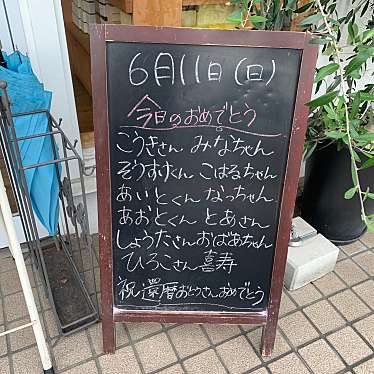 6月11日(日)
今日のおめでとう
こうきさん みなちゃん
そうすけくん こはるちゃん
あいとくん なっちゃん
あおとくん とあさん
しょうたさん おばあちゃん
ひろこさん 喜寿
祝 還暦 おとうさん おめでとう